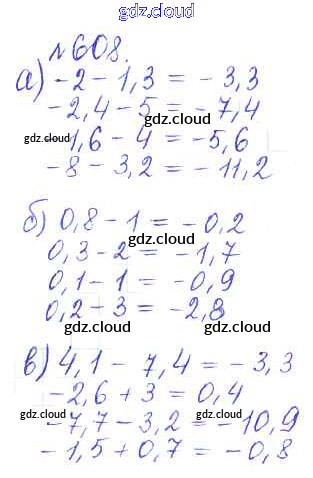 gdz.cloud
№608.
а) -2 - 1,3 = -3,3
-2,4 - 5 = -7,4
gdz.cloud
1,6 - 4 = -5,6
gdz.cloud
-8 - 3,2 = -11,2
б) 0,8 - 1 = -0,2
gdz.cloud
0,3 - 2 = -1,7
0,1 - 1 = -0,9
0,2 - 3 = -2,8
gdz.cloud
gdz.cloud
в) 4,1 - 7,4 = -3,3
-2,6 + 3 = 0,4
gdz.cloud
gdz.cloud
-7,7 - 3,2 = -10,9
-1,5 + 0,7 = -0,8
gdz.cloud